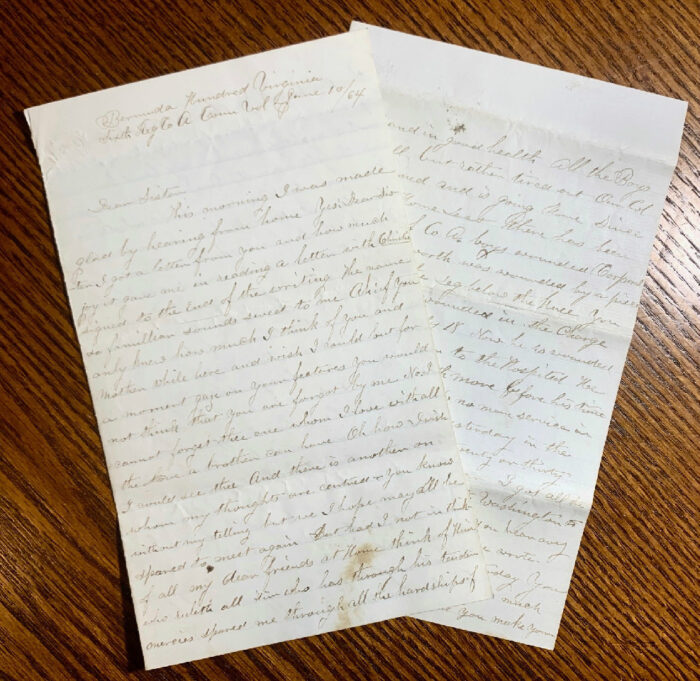 Bermuda Hundred Virginia
Sixth Reg Co A Conn Vol June 10/64
Dear Sister
This morning I was made
glad by hearing from home Yes Dear Sis
ter I got a letter from you and how much
joy it gave me in reading a letter with
signed to the End of the writing the name
so familliar sounds sweet to me O if you
only knew how much I think of you and
Mother while here and wish I could but for
a moment gaze on your features you would
not think that you are forgot by me No I
cannot forget thee one whom I love with all
the love a brother can have Oh how I wish
I would see thee And there is another on
whom my thoughts are centred you know
without my telling but we I hope may all be
spared to meet again But had I not in think
of all my dear friends at Home think of Him
who ruleth all who has through his tender
mercies spared me through all the hardships of
and in good health All the Boys
but rather tired out Our Col
and is going home since
there has been
Co A boys wounded Corporal
was wounded by a piece
leg below the knee You
wounded in the Charge
18 Now he is wounded
to the Hospital He
more before his time
no more service in
yesterday in the
twenty or thirty
all
Washington to
hear any
wrote
day you
much
you make your